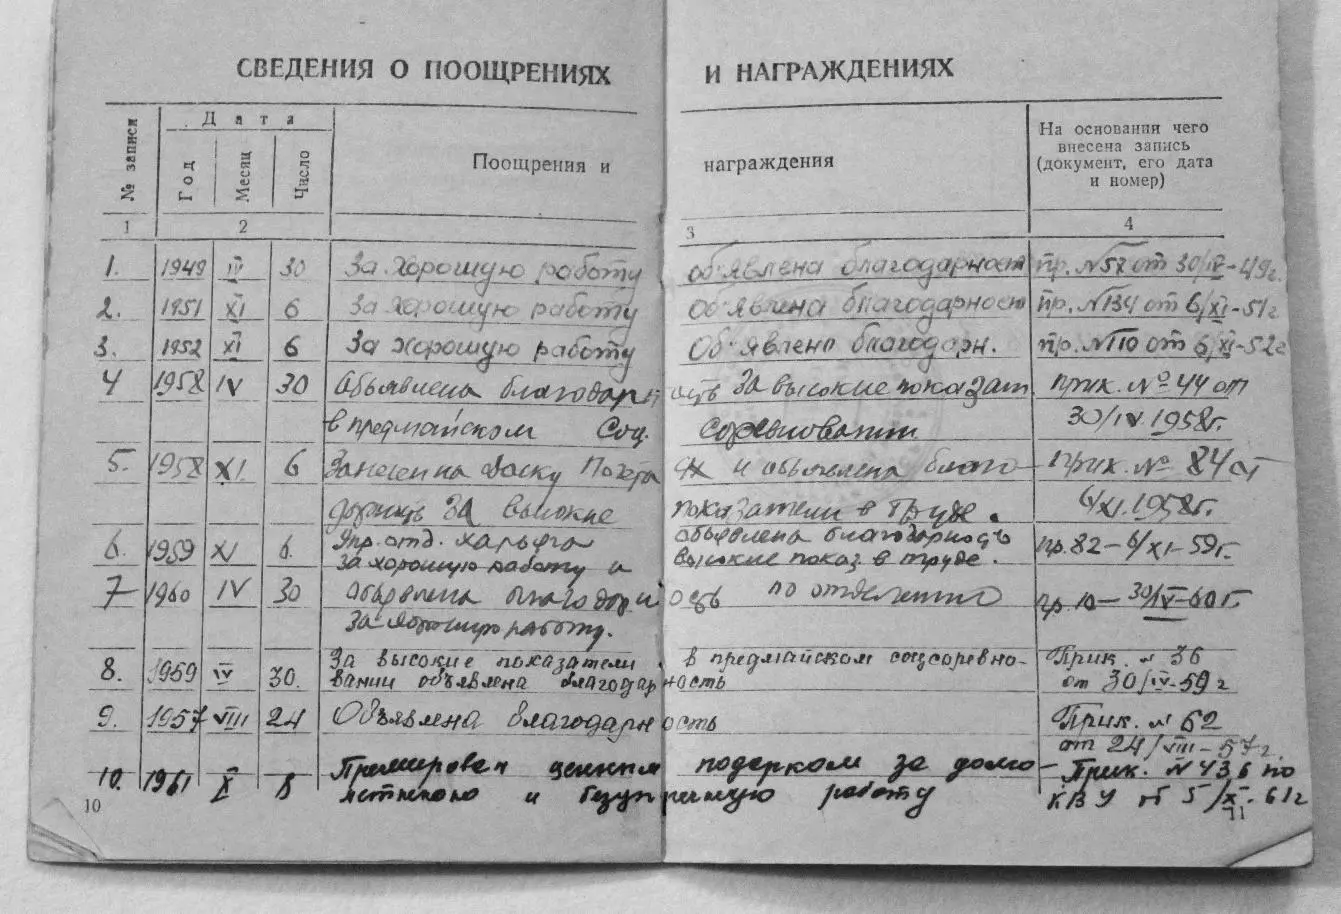 СВЕДЕНИЯ О ПООЩРЕНИЯХ И НАГРАЖДЕНИЯХ
№ записи
Дата
Год
Месяц
Число
Поощрения и награждения
На основании чего
внесена запись
(документ, его дата
и номер)
1 2 3 4
1. 1949 IV 30 За хорошую работу объявлена благодарност пр. №57 от 30/IV-49г.
2. 1951 XI 6 За хорошую работу объявлена благодарност пр. №134 от 6/XI-51г
3. 1952 XI 6 За хорошую работу Объявлена благодарн. пр. №110 от 6/XI-52г
4 1958 IV 30 Объявлена благодарность за высокие показат прик. № 44 от
в предмайском Соц. соревновании 30/IV.1958г.
5. 1958 XI. 6 Занесен на Доску Почета и объявлена благо- прик. № 84 от
дорность За высокие показатели в труде. 6/XI.1958г.
6. 1959 XI 6. объявлена благодарность
за хорошую работу и высокие показ. в труде. пр. 82-6/XI-59г.
7 1960 IV 30 Объявлена благодорность по отделению пр. 10-30/IV-60г.
За хорошую работу.
8. 1959 IV 30. За высокие показатели в предмайском соцсоревно- Прик. № 36
вании объявлена благодарность от 30/IV-59г
9. 1957 VIII 24 Объявлена благодарность Прик. № 62
от 24/VIII-57г.
10. 1961 X Премирован ценным подарком за долго- Прик. № 436 по
летнюю и безупречную работу КВУ от 5/XI-61г
10